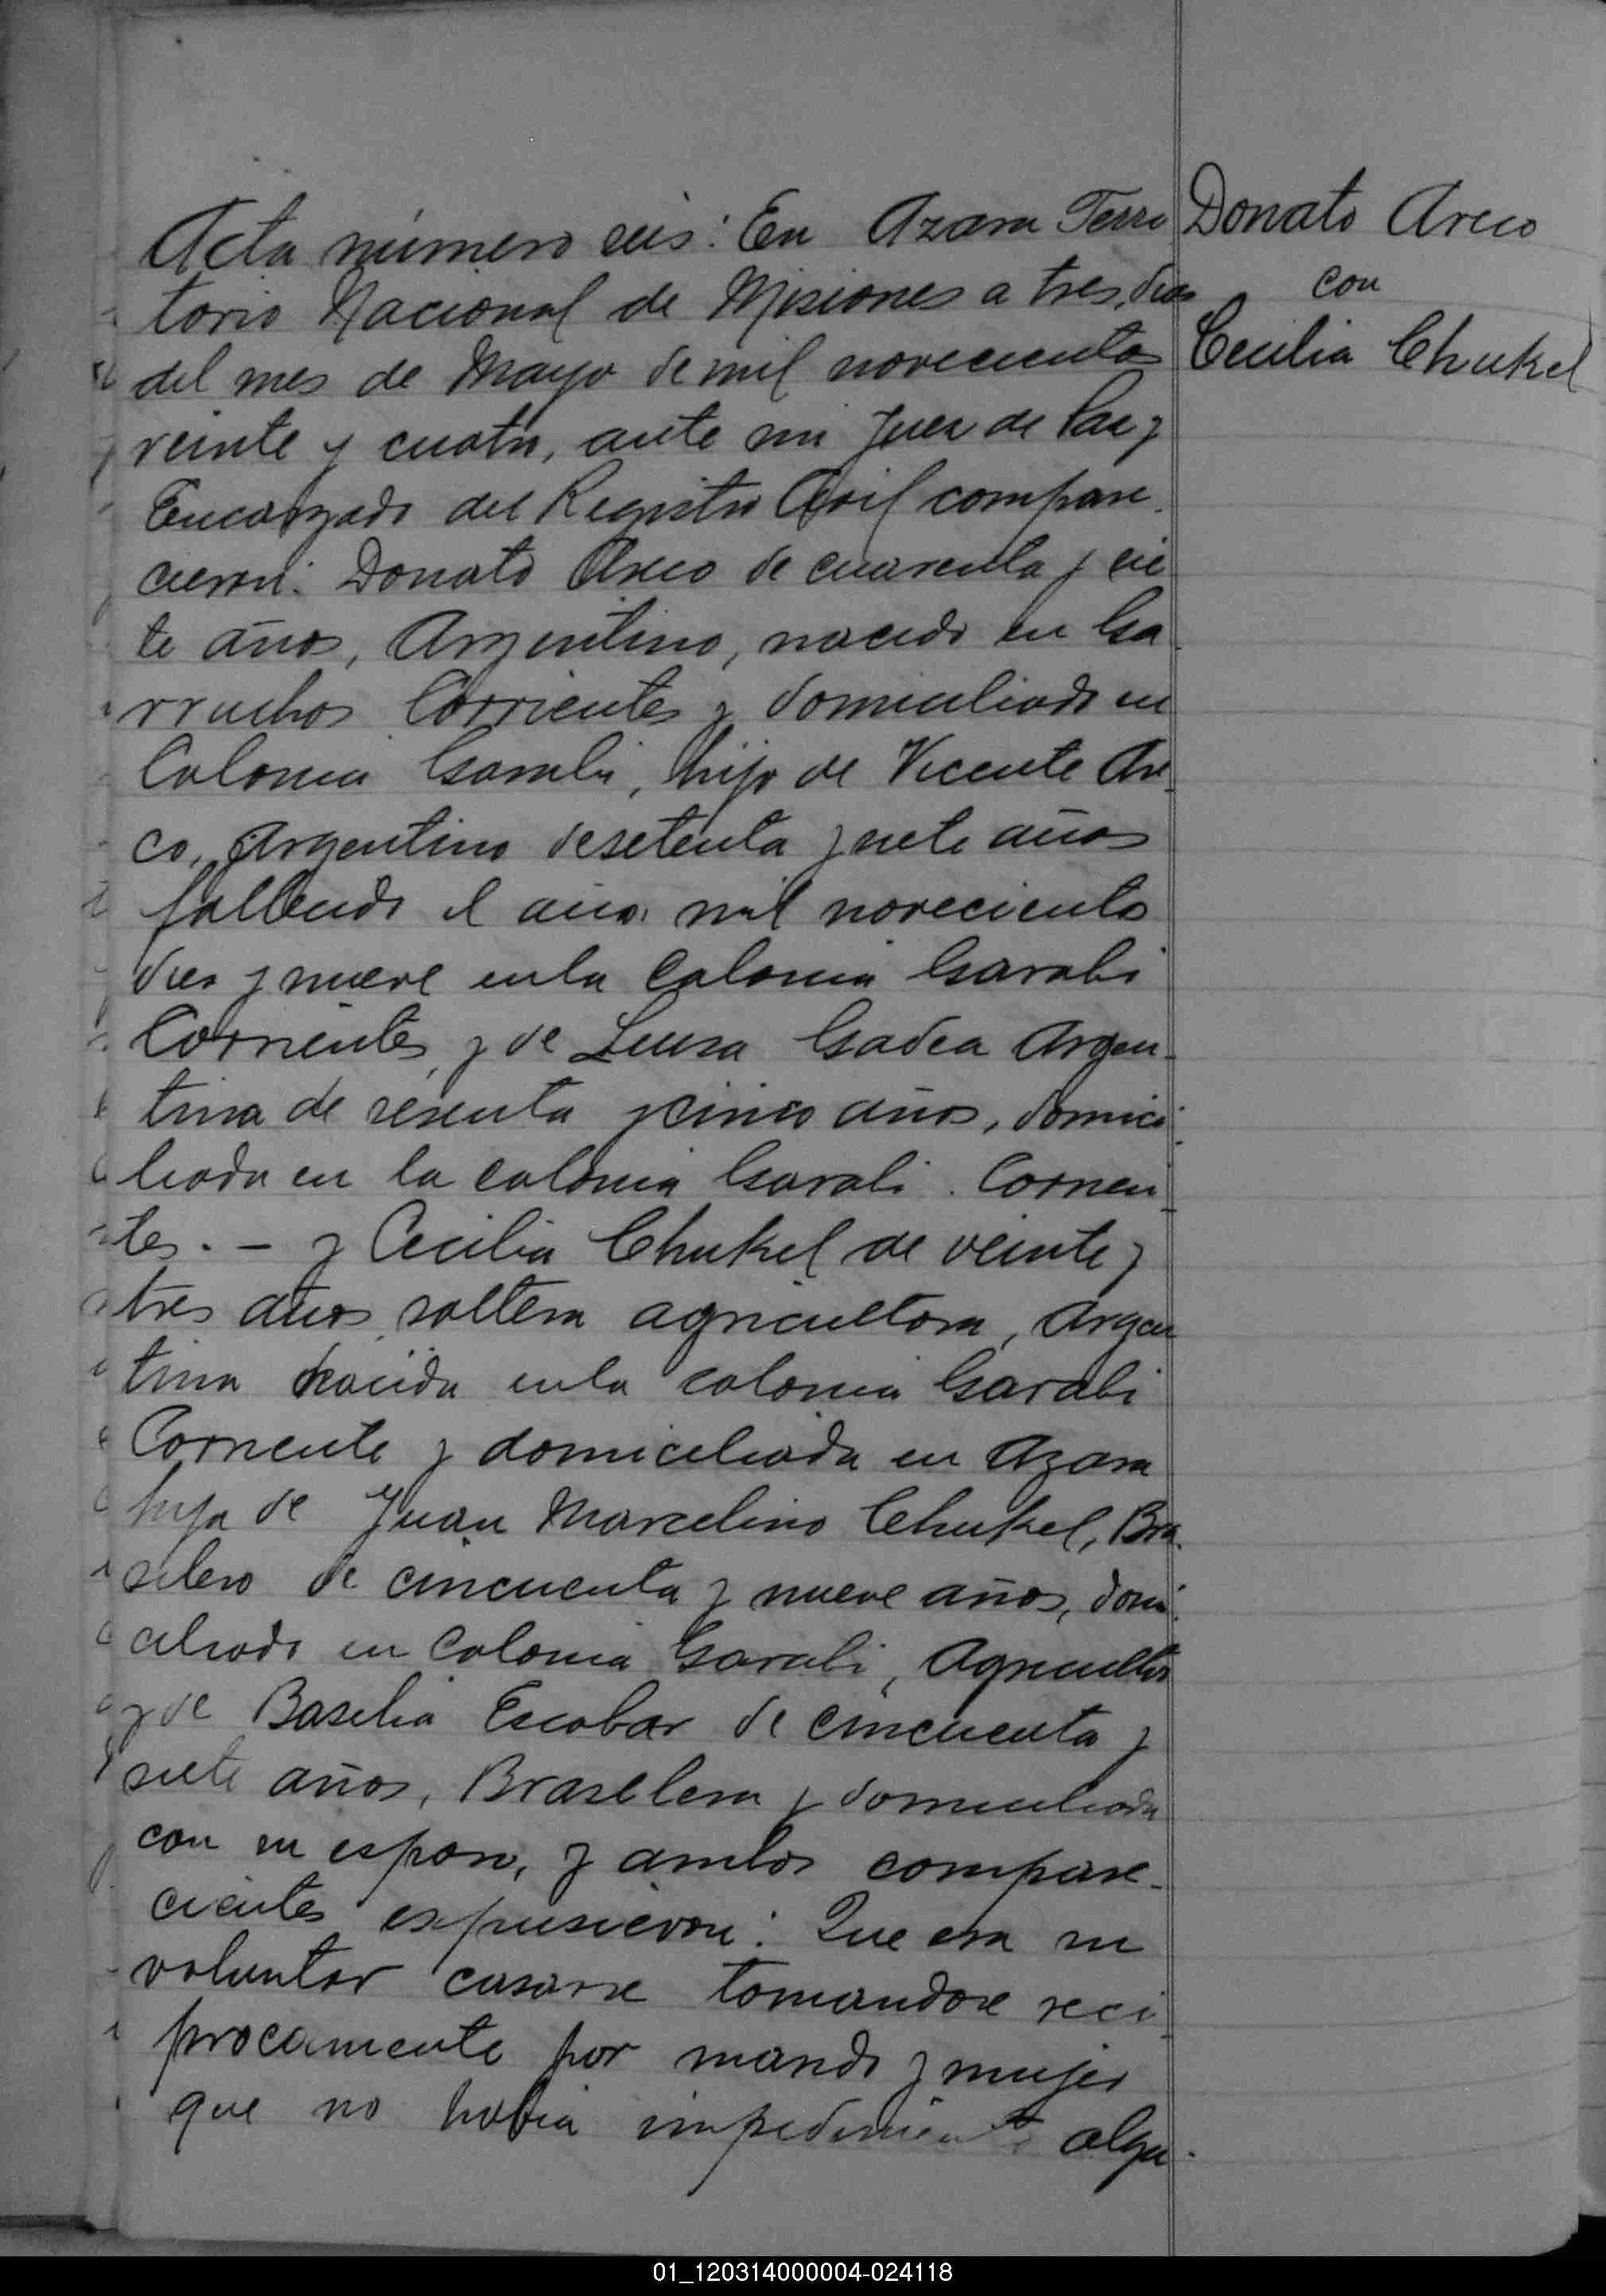 Donato Areco
con
Cecilia Chukel
Acta número seis: En Azara Terri
torio Nacional de Misiones a tres dias
del mes de Mayo de mil novecientos
veinte y cuatro, ante mi Juez de Paz y
Encargado del Registro Civil compare
cieron: Donato Areco de cuarenta y sie
te años, Argentino, nacido en Ga
rruchos Corrientes y domiciliado en
Colonia Garabi, hijo de Vicente Are
co, Argentino de setenta y siete años
fallecido el año mil novecientos
dies y nueve en la Colonia Garabi
Corrientes, y de Luisa Gadea Argen-
tina de sesenta y cinco años, domici
liada en la colonia Garabi. Corrien
tes. - y Cecilia Chukel de veinte y
tres años soltera agricultora, Argen
tina nacida en la colonia Garabi
Corriente y domiciliada en Azara
hija de Juan Marcelino Chukel, Bra.
silero de cincuenta y nueve años, domi
ciliado en Colonia Garabi, Agricultor
y de Basilia Escobar de cincuenta y
siete años, Brasilera y domiciliada
con su esposo, y ambos compare-
cientes expusieron: Que era su
voluntar casarse tomandose reci
procamente por marido y mujer
que no habia impedimento algu-
01_120314000004-024118